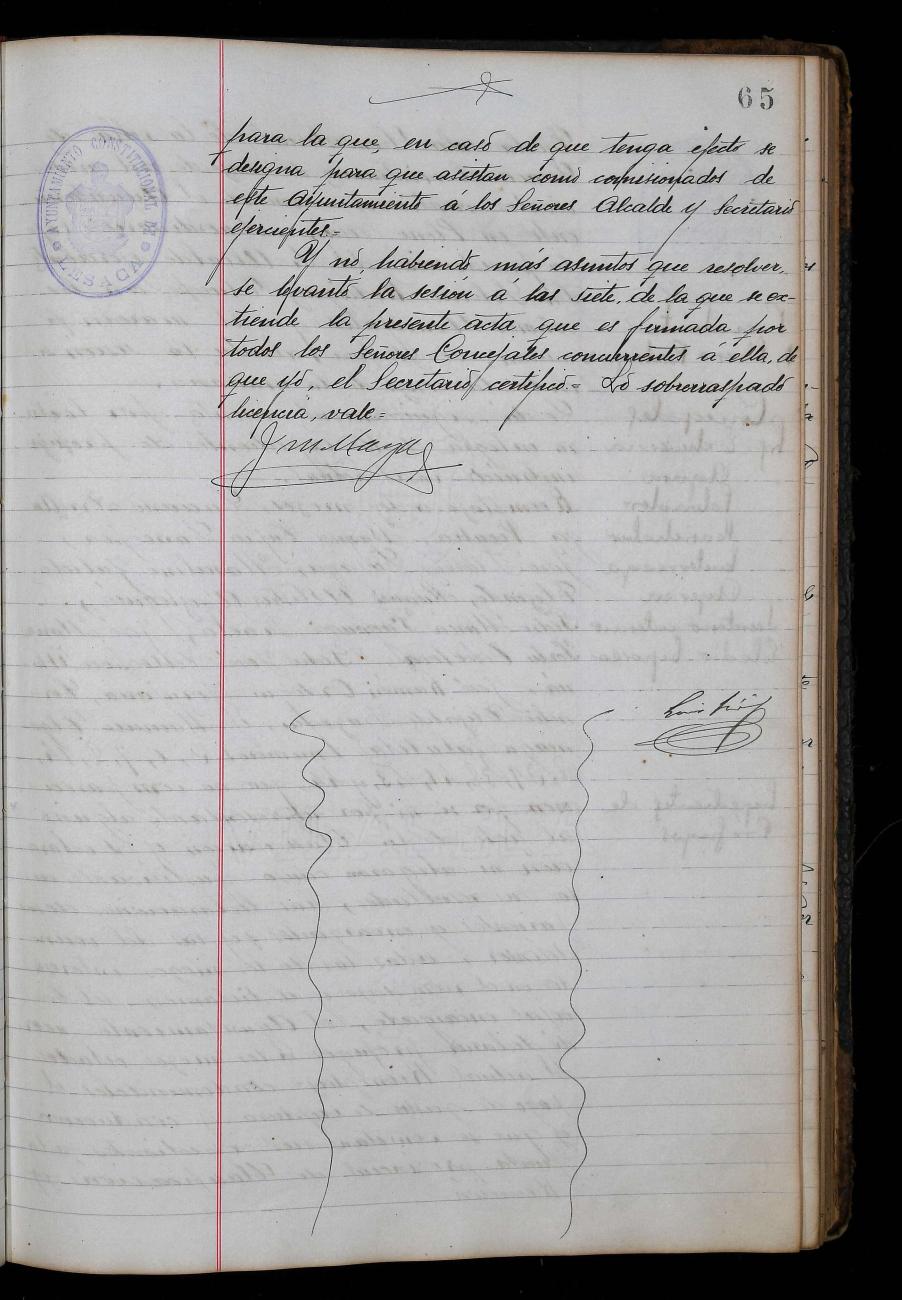 65
AYUNTAMIENTO CONSTITUCIONAL
para la que, en casó de que tenga efecto se
designa para que asistan comó comisionados de
este Ayuntamiento á los Señores Alcalde y Secretarió
ejercientes.=
Y nó habiendo más asuntos que resolver
se levantó la sesión á las siete, de la que se ex-
tiende la presente ácta que es firmada por
todos los Señores Concejales concurrentes á ella, de
que yó, el Secretarió, certificó.= Ló sobrerraspadó
licencia, vale=
J M Maya
Luis